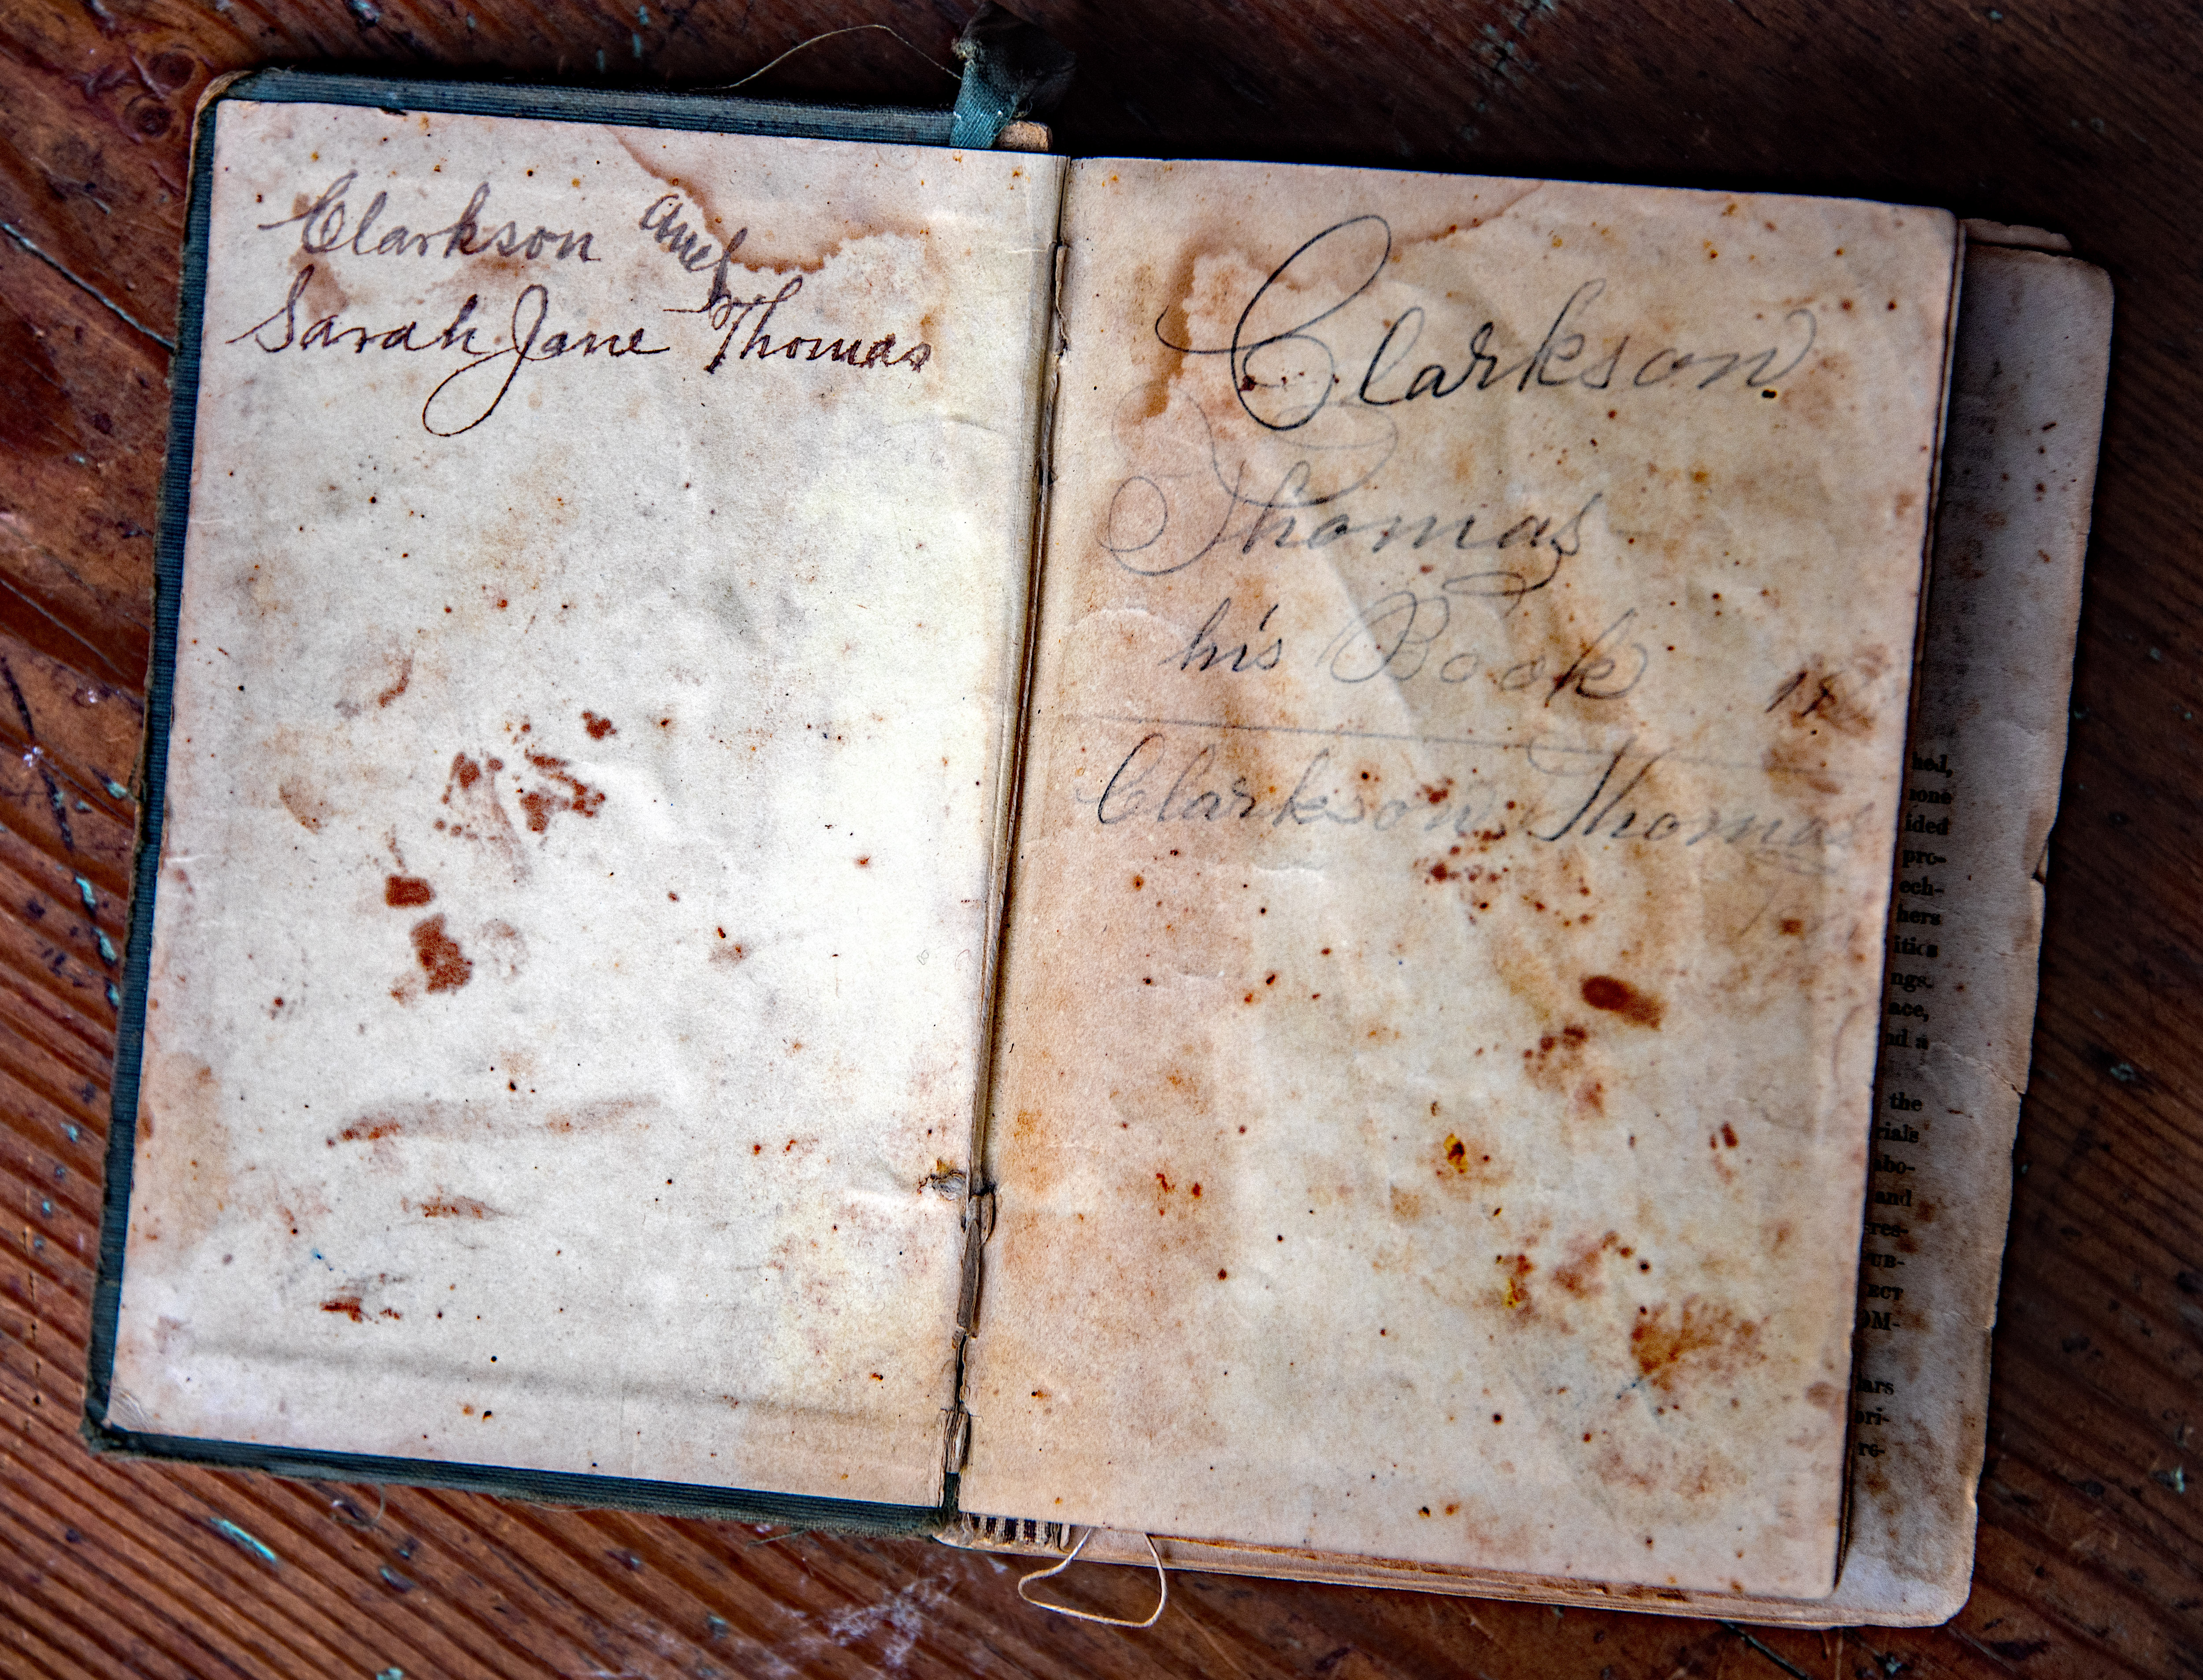 Clarkson and
Sarah Jane Thomas
Clarkson
Thomas
his Book
Clarkson Thomas
hed,
one
ided
pro-
ech-
hers
itics
ngs.
ace,
nd a
the
rials
abo-
and
res-
UB-
ECT
OM-
ars
ori-
re-